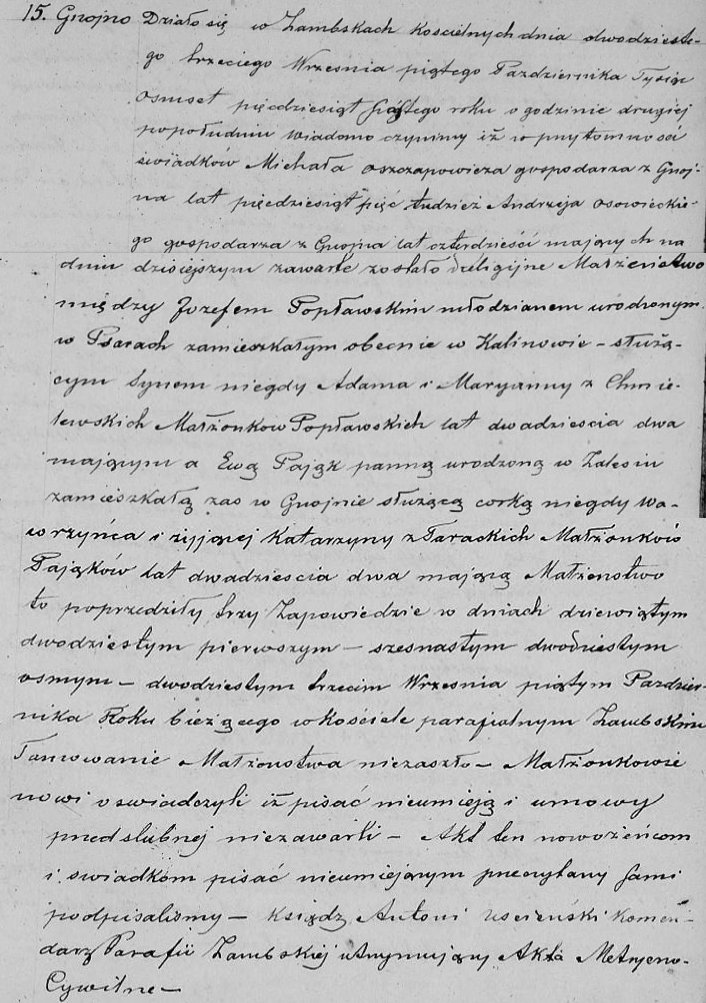 15. Gnojno Działo się w Zambskach Kościelnych dnia dwodzieste-
go trzeciego Wrzesnia piątego Pazdziernika Tysiąc
Osmset pięćdziesiąt szóstego roku o godzinie drugiej
popołudniu Wiadomo czynimy iż w przytomności
świadków Michała Oszczapowicza gospodarza z Gnoj-
na lat pięćdziesiąt pięć tudzież Andrzeja Osowieckie-
go gospodarza z Gnojna lat czterdzieści mających na
dniu dzisiejszym zawarte zostało Religijne Małżeństwo
między Jozefem Popławskim młodzianem urodzonym
w Psarach zamieszkałym obecnie w Kalinowie – służą-
cym Synem niegdy Adama i Maryanny z Chmie-
lewskich Małżonkow Popławskich lat dwadziescia dwa
mającym a Ewą Pająk panną urodzoną w Zalesiu
zamieszkałą zas w Gnojnie służącą corką niegdy Wa-
wrzyńca i żyjącej Katarzyny z Taraskich Małżonków
Pająków lat dwadziescia dwa mającą Małżenstwo
to poprzedziły trzy Zapowiedzie w dniach dziewiątym
dwodziestym pierwszym – szesnastym dwodziestym
osmym – dwodziestym trzecim Wrzesnia piątym Pazdzier-
nika Roku bieżącego w Kościele parafialnym Zambskim
Tamowanie Małżenstwa niezaszło – Małżonkowie
nowi oswiadczyli iż pisać nieumieją i umowy
przedslubnej niezawarli – Akt ten nowożeńcom
i swiadkom pisać nieumiejącym przeczytany sami
podpisalismy – Ksiądz Antoni Uscienski Komen-
darz Parafii Zambskiej utrzymujący Akta Metryczno-
Cywilne –